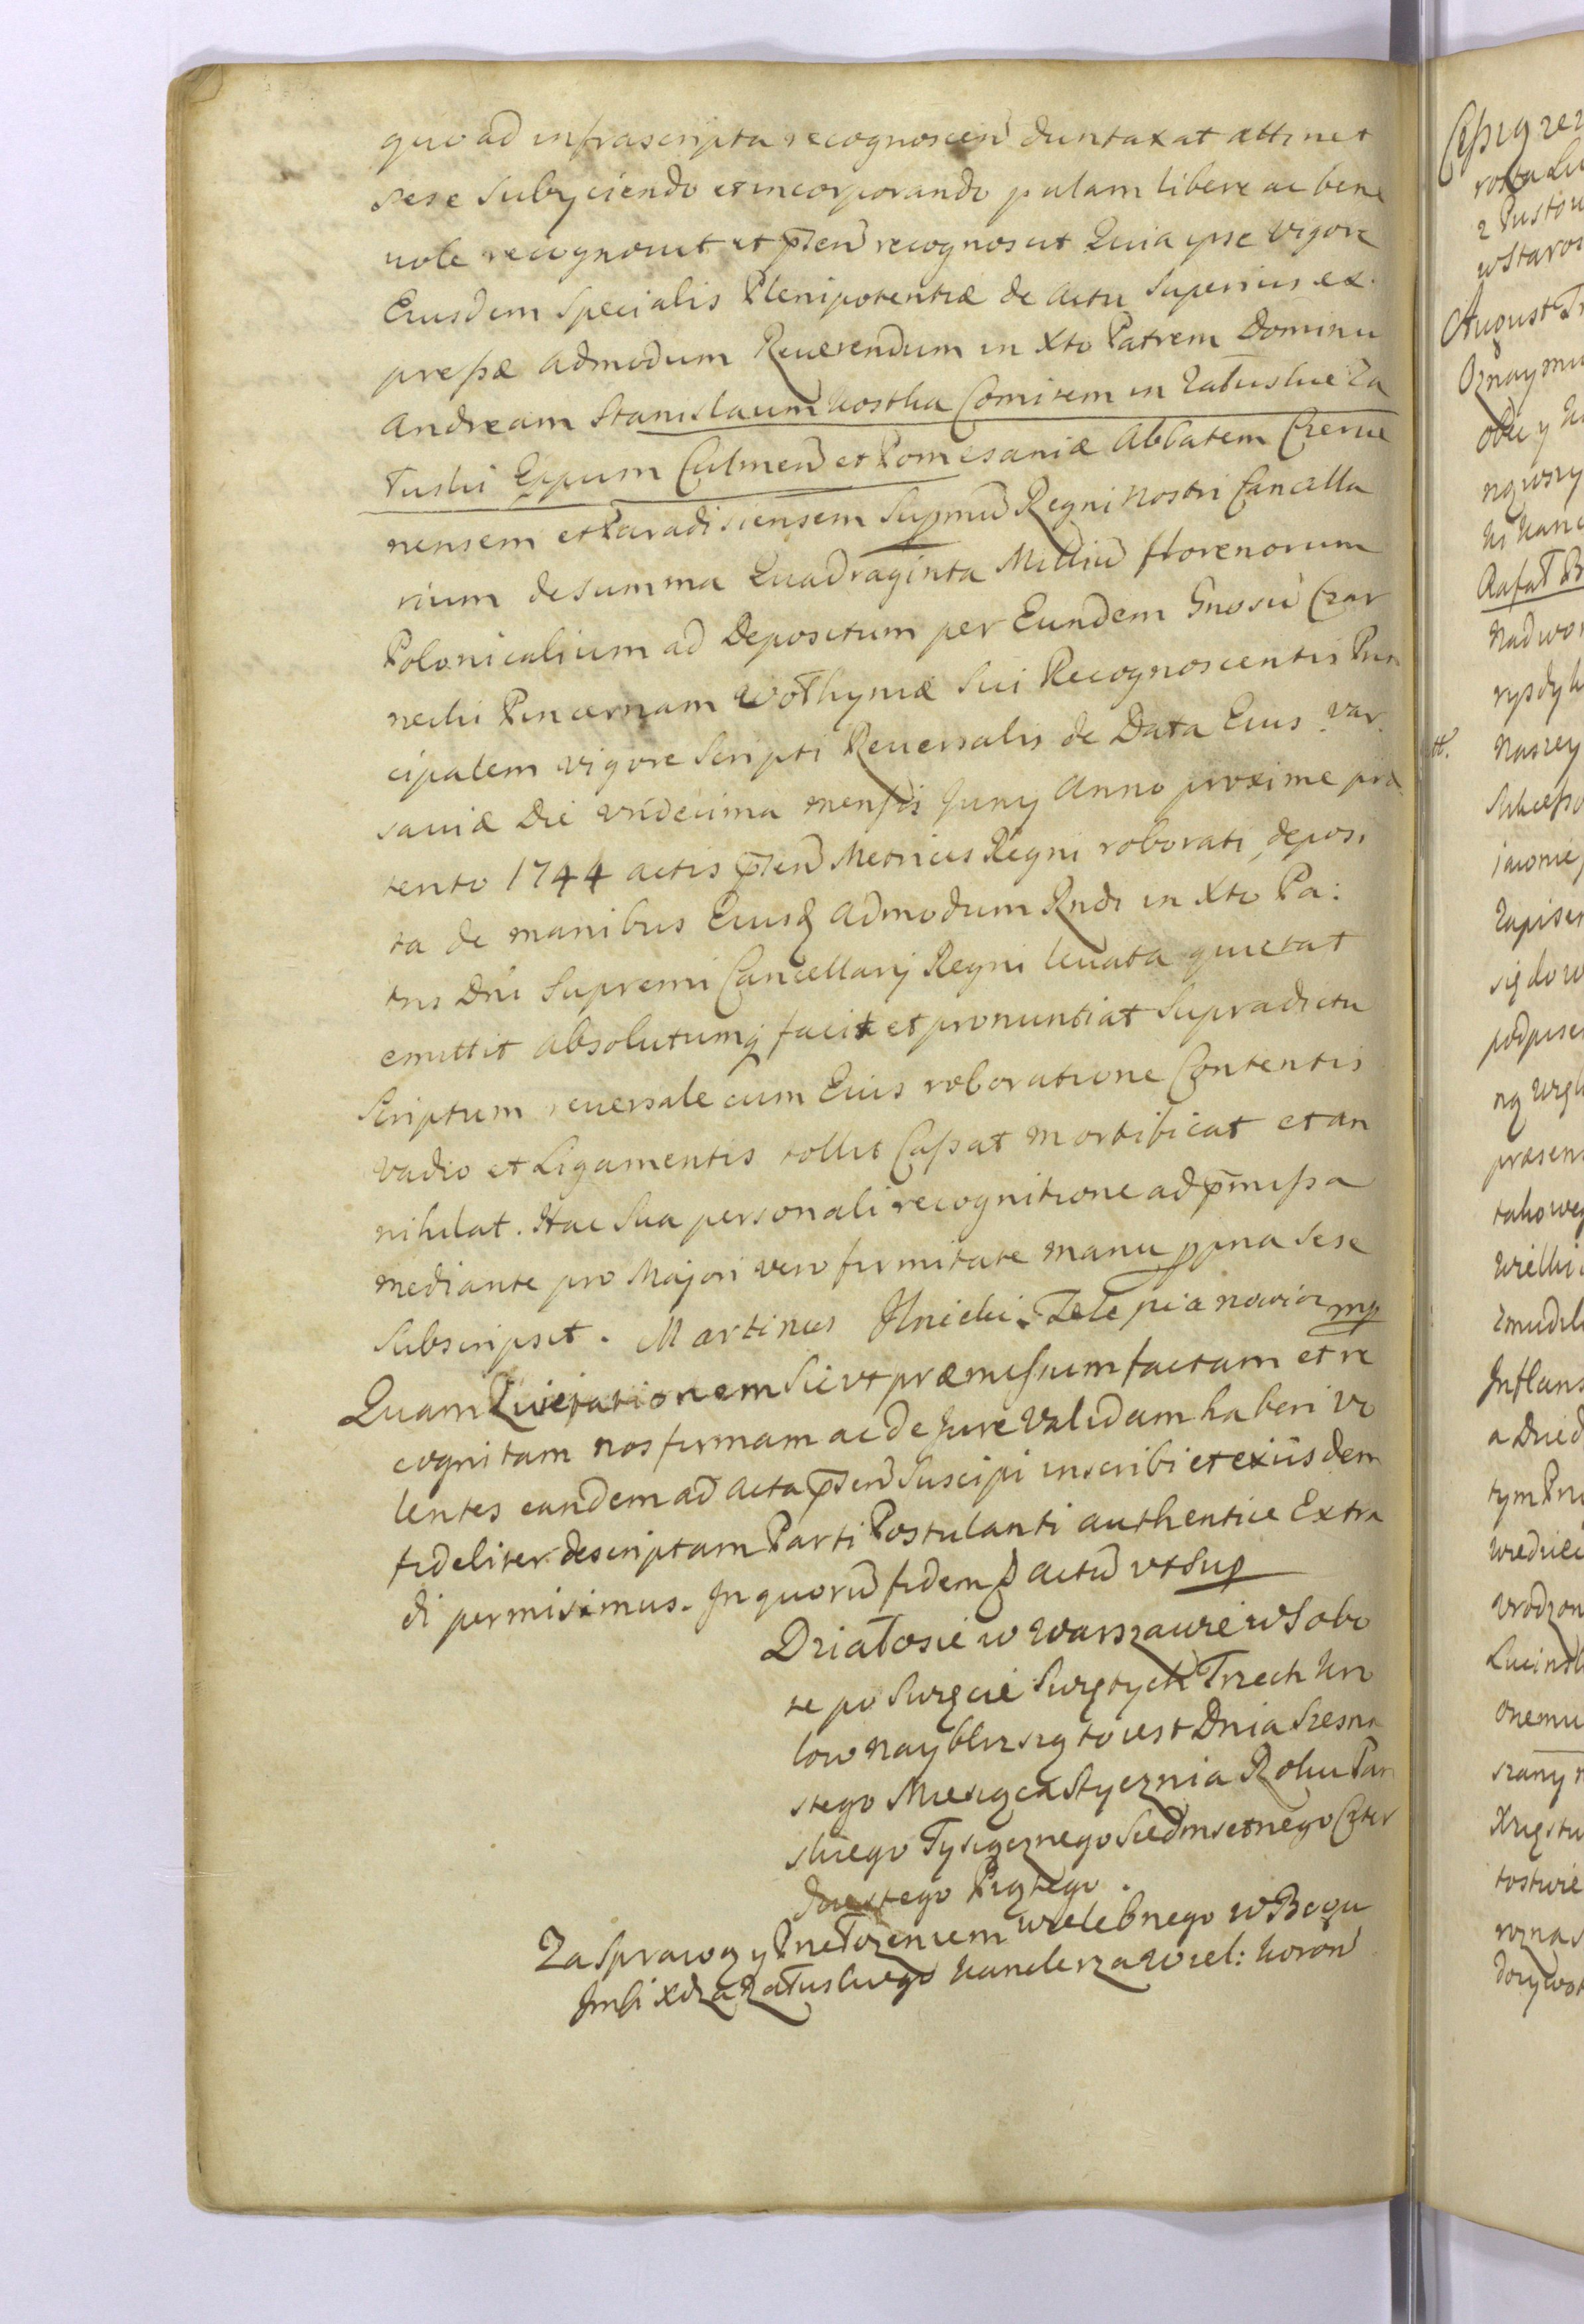 quo ad infrascripta recognoscen duntaxat attinet
sese Subyciendo et incorporando palam libere ac bene
uole recognouit et pñten recognoscit Quia ipse vigore
Eiusdem Specialis Plenipotentiæ de actu Superius ex
preßæ admodum Reuerendum in Xto Patrem Dominu
Andream Stanislaum Kostka Comitem in Załuskie Za
łuski Eppum Culmen et Pomesaniæ Abbatem Czerwe
nensem et Paradisiensem Supmu Regni Nostri Cancella
rium de Summa Quadraginta Milliu florenorum
Polonicalium ad Depositum per Eundem Gnosu Czar
necki Pincernam Wołhyniæ Sui Recognoscentis Prin
cipalem vigore Scripti Reuersalis de Data Eius Var
saviæ Die vndecima mensis Juny Anno proxime præ
terito 1744 actis pñten Metrices Regni roborati deposi
ta de manibus Eiusq admodum Rndi in Xto Pa:
tris Dni Supremi Cancellarij Regni leuata quietat
emittit absolutumq facit et pronuntiat Supradictu
Scriptum reuersale cum Eius roboratione Contentis
vadio et Ligamentis tollit Caßat mortificat et an
nihilat. Hac Sua personali recognitione ad pmißa
mediante pro Majori vero firmitate manu ppria sese
Subscripsit. Martinus Ilnicki Telepianowicz mp
Quam Quietationem Sic vt præmissum factam et re
cognitam nos firmam ac de Jure Validam haberi vo
lentes eandem ad acta pñten Suscipi inscribi et ex iisdem
fideliter descriptam Parti Postulanti authentice Extra
di permisimus. In quoru fidem p actu vt Sup
Działo sie w Warszawie w Sobo
te po Swięcie Swiętych Trzech Kro
low nayblizszą to iest Dnia Szesna
stego Miesiąca Stycznia Roku Pan
skiego Tysiącznego Siedmsetnego Czter
dziestego Piątego.
Za Sprawą y Przełozeniem Wielebnego w Bogu
Jmści Xdza Załuskiego Kanclerza Wiel: Koron